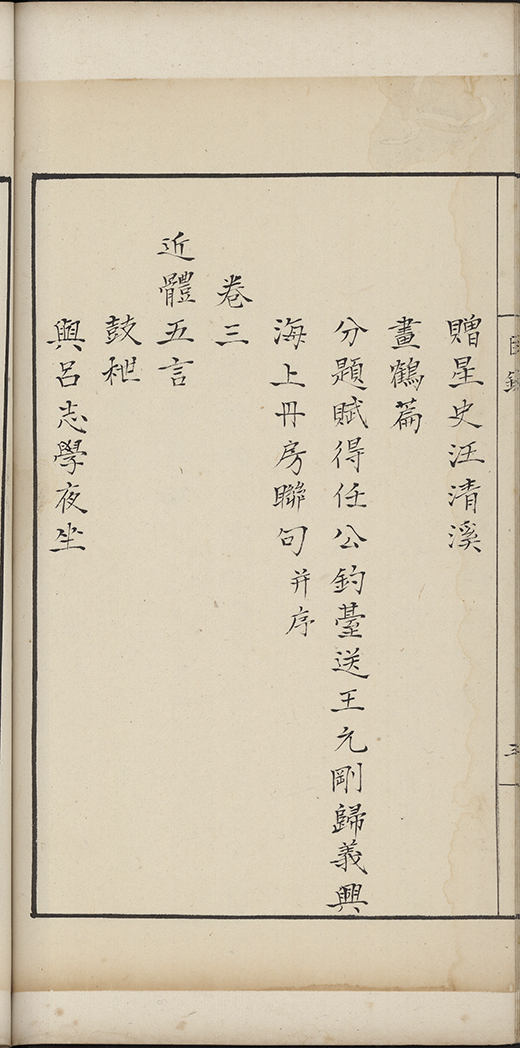 目錄
三
贈星史汪清溪
畫鶴篇
分題賦得任公釣臺送王元剛歸義興
海上丹房聯句并序
卷三
近體五言
鼓枻
與呂志學夜坐